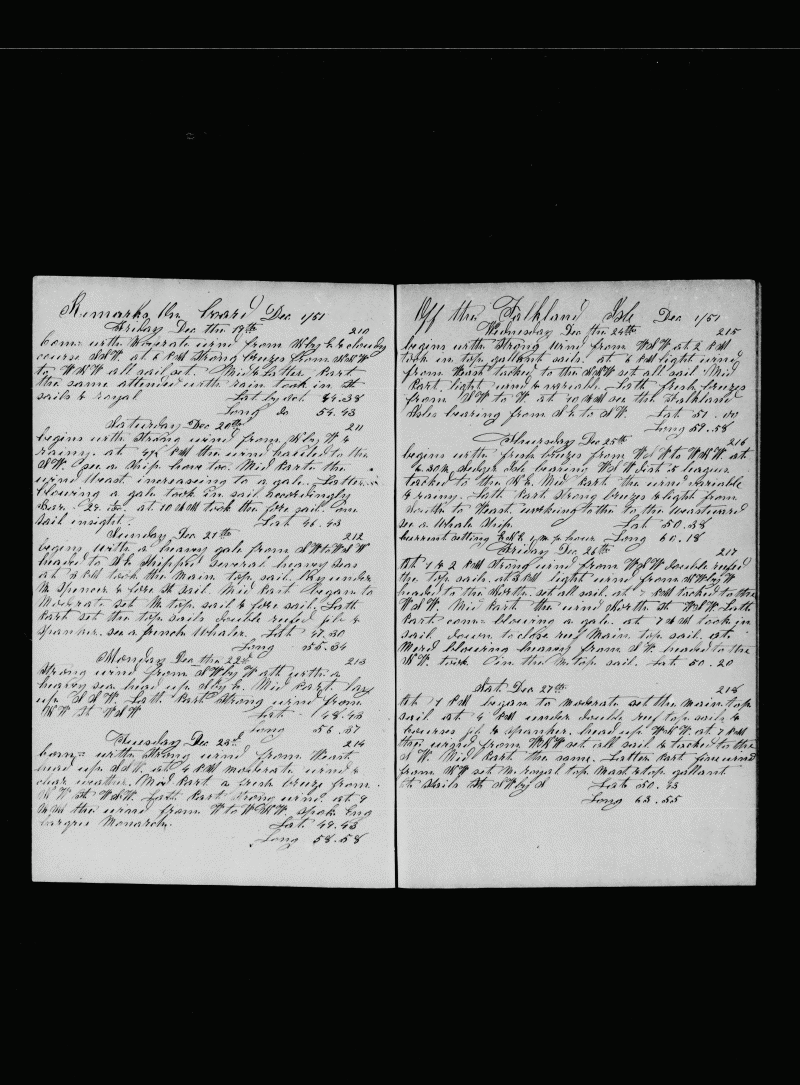 Remarks On board Dec 1/51
Friday Dec the 19th 210
Com= with Moderate wind from N by E & cloudy
course SSW. at 6 PM Strong breezes from NNW
to WNW all sail set. Mid & Latter Part
the same attended with rain took in St
sails & royal Lat by act. 44.38
Long do 54.43
Saturday Dec 20th 211
begins with strong wind from N by W &
rainy. at 4 PM the wind hauled to the
SW. see a Ship hove too. Mid Part the
wind West increasing to a gale. Latter
blowing a gale took in sail accordingly
Bar. 29. at 10 AM took the fore sail. one
sail insight. Lat 46.43
Sunday Dec 21th 212
begins with a heavy gale from SW to WSW
headed to St. Shipped several heavy seas
at 7 PM took the Main top sail. Lay under
M Spencer & fore St sail. Mid Part began to
Moderate set M top sail & fore sail. Latt
Part set the top sails double reefed jib &
spanker. see a french Whaler. Lat 47.30
Long 55.34
Monday Dec the 22d 213
Strong wind from SW by W ath with a
heavy sea head up S by E. Mid Part lay
up SSW. Latt Part Strong wind from
NW to WNW Lat 48.43
Long 56.57
Tuesday Dec 23d 214
Com= with Strong wind from West
head up SSW. at 4 PM moderate wind &
clear weather. Mid Part a fresh breeze from
NW to WNW. Latt Part Strong wind. at 9
AM the wind from W to WNW Spok Eng
barque Monarch. Lat 49.43
Long 58.58
Off the Falkland Isle Dec 1/51
Wednesday Dec the 24th 215
begins with Strong wind from WSW at 2 PM
took in top gallant sails. at 6 PM light wind
from West tacked to the SSW set all sail. Mid
Part. light wind & variable. Latt fresh breezes
from SW to W. at 10 AM see the Falkland
Isles bearing from SE to SW. Lat 51.00
Long 59.58
Thursday Dec 25th 216
begins with fresh breezes from W to WNW at
6.30 m. Sedger Isle bearing WSW dist 5 leagues
tacked to the NE. Mid Part the wind variable
& rainy. Latt Part strong breezes & light from
South to West. working to the to the Westward
see a Whale Ship. Lat 50.38
Current setting ENE 1/2 m pr hour Long 60.18
Friday Dec 26th 217
At 1 & 2 PM Strong wind from WSW double reefed
the top sails. at 3 PM light wind from NW by W
headed to the North. set all sail. at 7 PM tacked to the
WSW. Mid Part the wind North to WSW. Latt
Part com= blowing a gale. at 7 AM took in
sail down to close reef Main top sail. at
Merd blowing heavy from SW. headed to the
NW. took in the M top sail. Lat 50.20
Sat. Dec 27th 218
At 1 PM began to moderate set the main top
sail at 4 PM under double reef top sails &
courses jib & spanker. head up WNW. at 7 PM
the wind from WNW set all sail & tacked to the
SW. Mid Part the same. Latter Part fine wind
from NW set M royal top Mast & top gallant
St Sails St SW by S Lat 50.43
Long 63.55